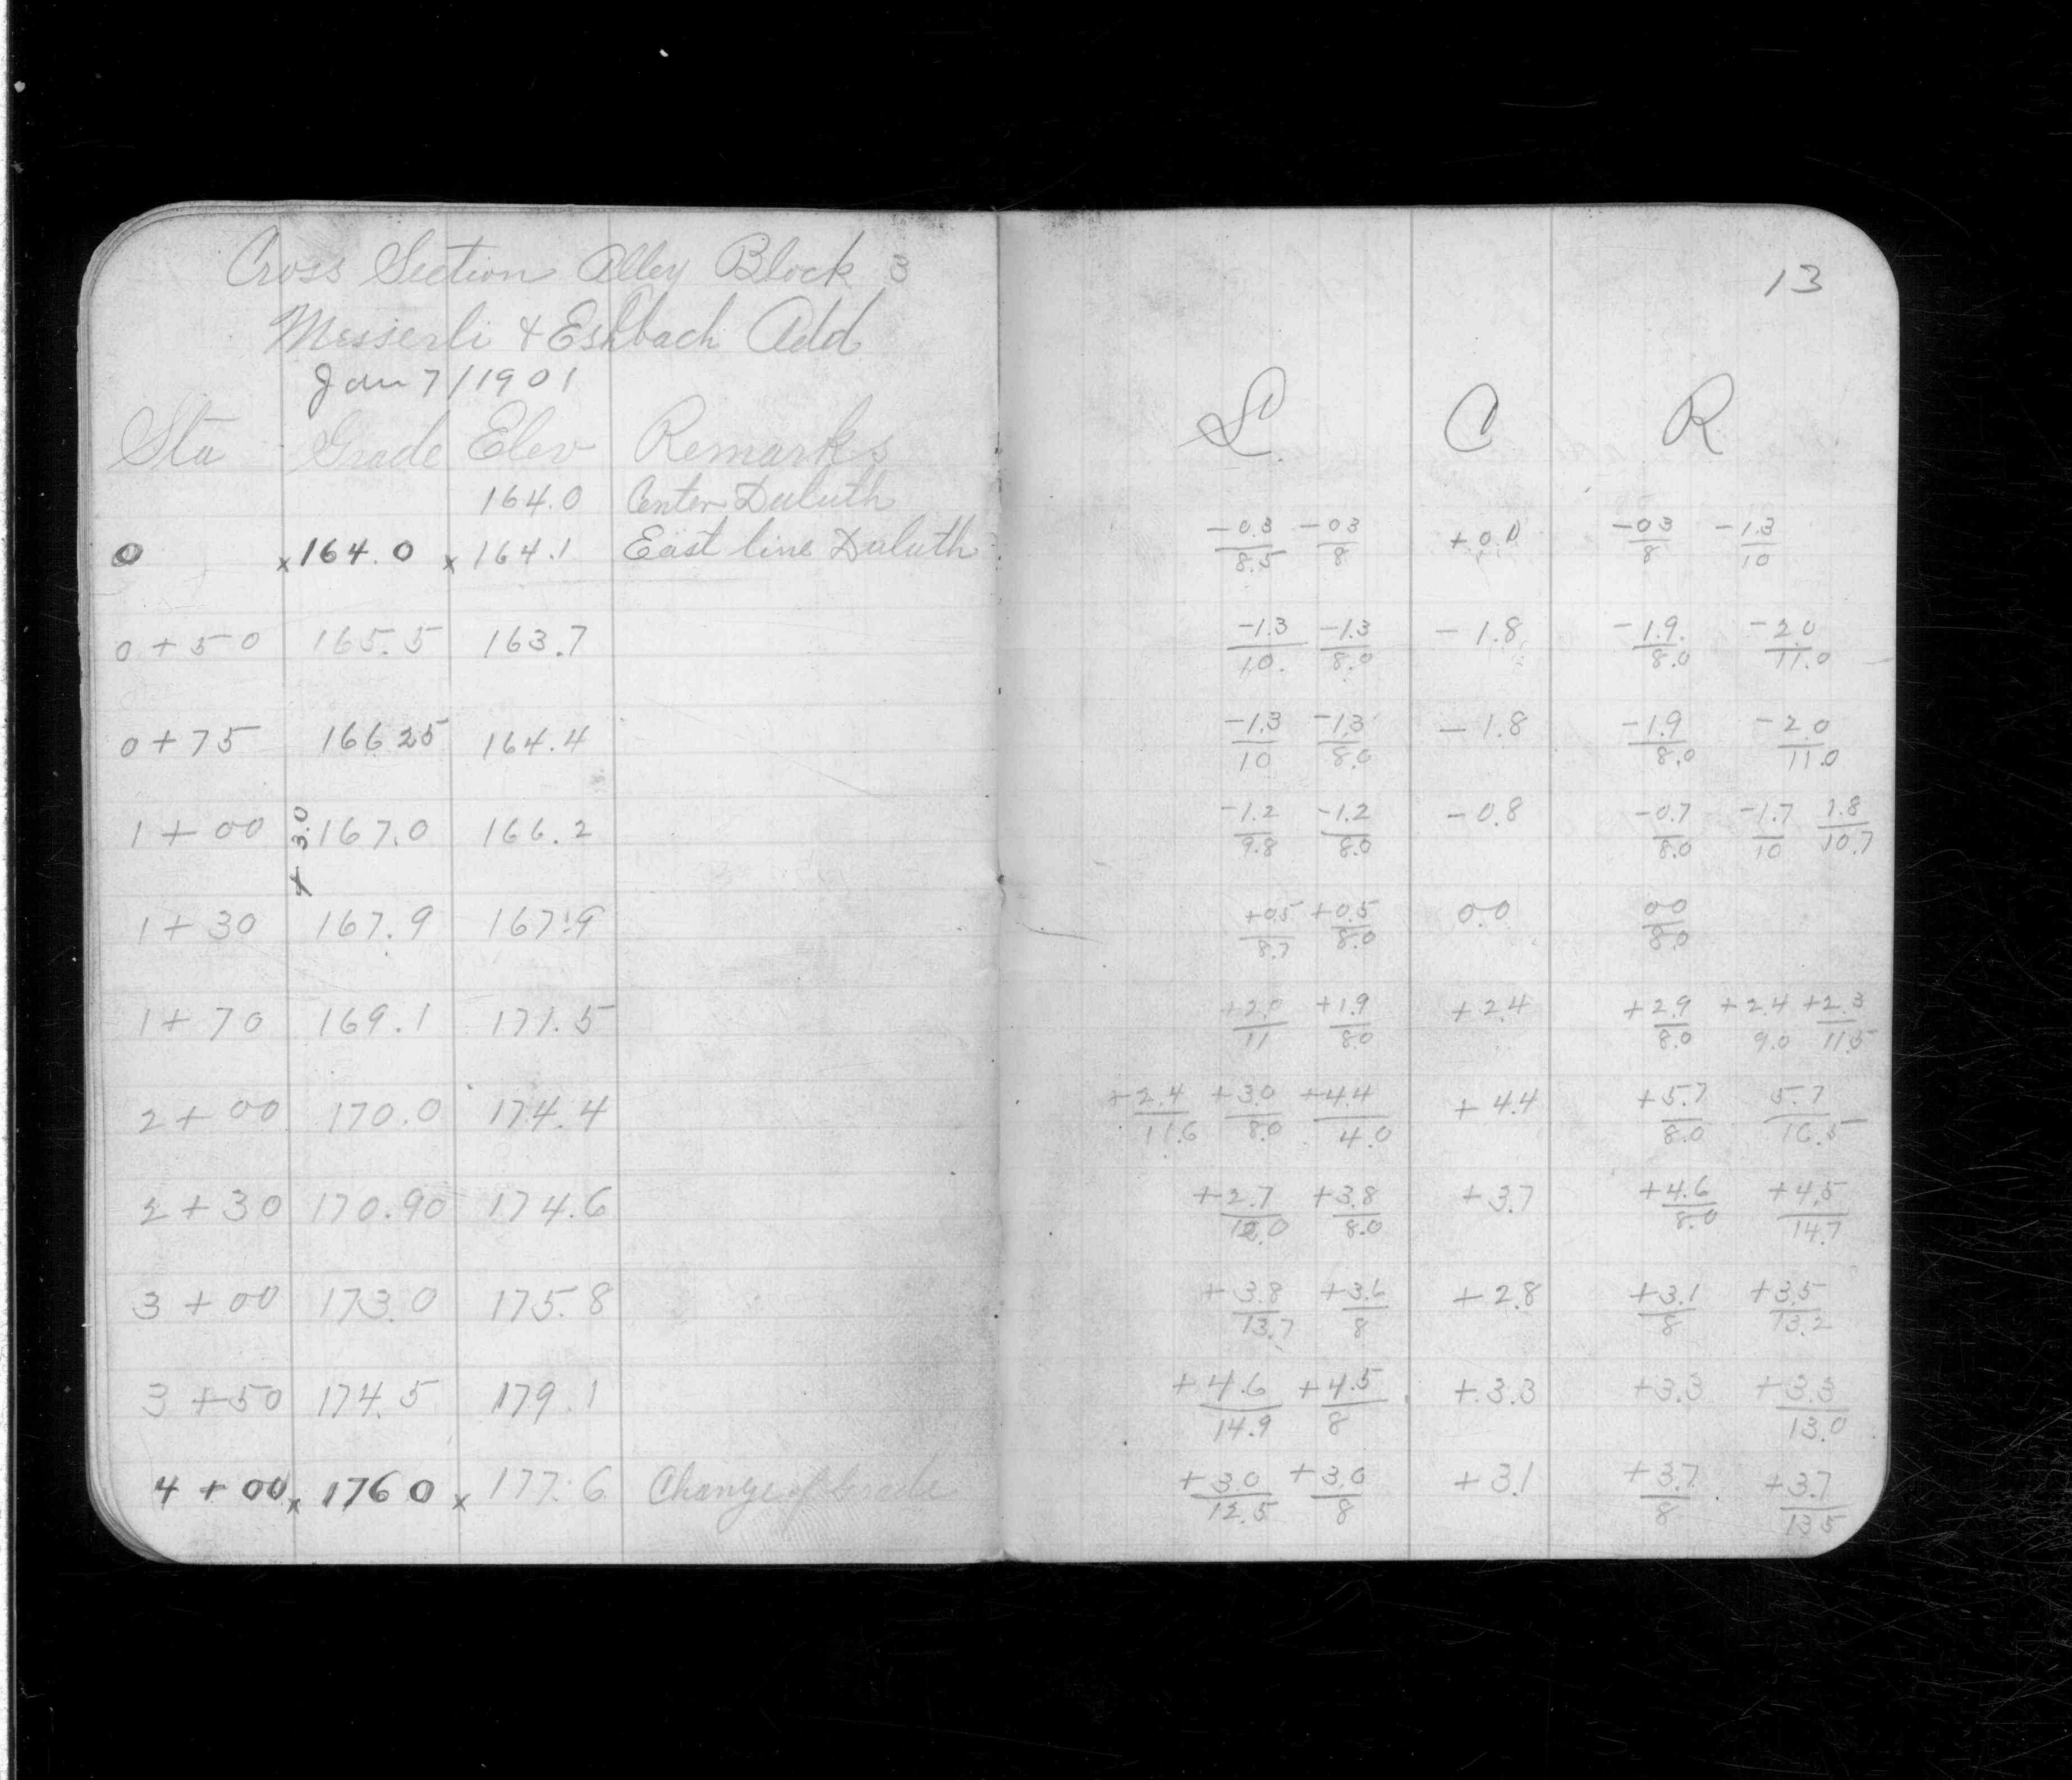 Cross Section Alley Block 3
Messerli & Eshbach Add
Jan 7/1901
Sta Grade Elev Remarks
164.0 Center Duluth
0 x 164.0 x 164.1 East line Duluth
0+50 165.5 163.7
0+75 166 25 164.4
1+00 167.0 166.2
+ 3.0
1+30 167.9 167.9
1+70 169.1 171.5
2+00 170.0 174.4
2+30 170.90 174.6
3+00 173.0 175.8
3+50 174.5 179.1
4+00 x 176 0 x 177.6 Change of Grade
13
L C R
-0.3/8.5 -03/8 +0.1 -03/8 -1.3/10
-1.3/10. -1.3/8.0 -1.8 -1.9./8.0 -2.0/11.0
-1.3/10 -1.3/8.0 -1.8 -1.9/8.0 -2.0/11.0
-1.2/9.8 -1.2/8.0 -0.8 -0.7/8.0 -1.7/10 1.8/10.7
+0.5/8.7 +0.5/8.0 0.0 00/8.0
+2.0/11 +1.9/8.0 +2.4 +2.9/8.0 +2.4/9.0 +2.3/11.5
+2.4/11.6 +3.0/8.0 +4.4/4.0 +4.4 +5.7/8.0 5.7/16.5
+2.7/12.0 +3.8/8.0 +3.7 +4.6/8.0 +4.5/14.7
+3.8/13.7 +3.6/8 +2.8 +3.1/8 +3.5/13.2
+4.6/14.9 +4.5/8 +3.3 +3.3 +3.3/13.0
+3.0/12.5 +3.0/8 +3.1 +3.7/8 +3.7/13.5